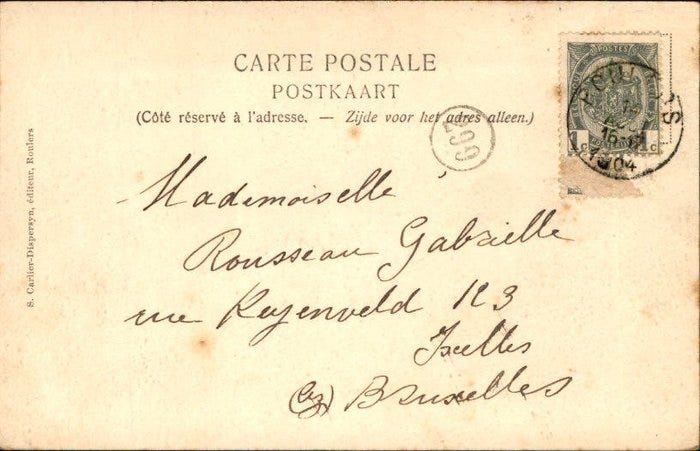 CARTE POSTALE
POSTKAART
(Côté réservé à l'adresse. — Zijde voor het adres alleen.)
POSTES
1 c 1 c
ROULERS
15
1904
Mademoiselle
Rousseau Gabrielle
rue Keyenveld 123
Ixelles
Bruxelles
S. Carlier-Dispersyn, éditeur, Roulers